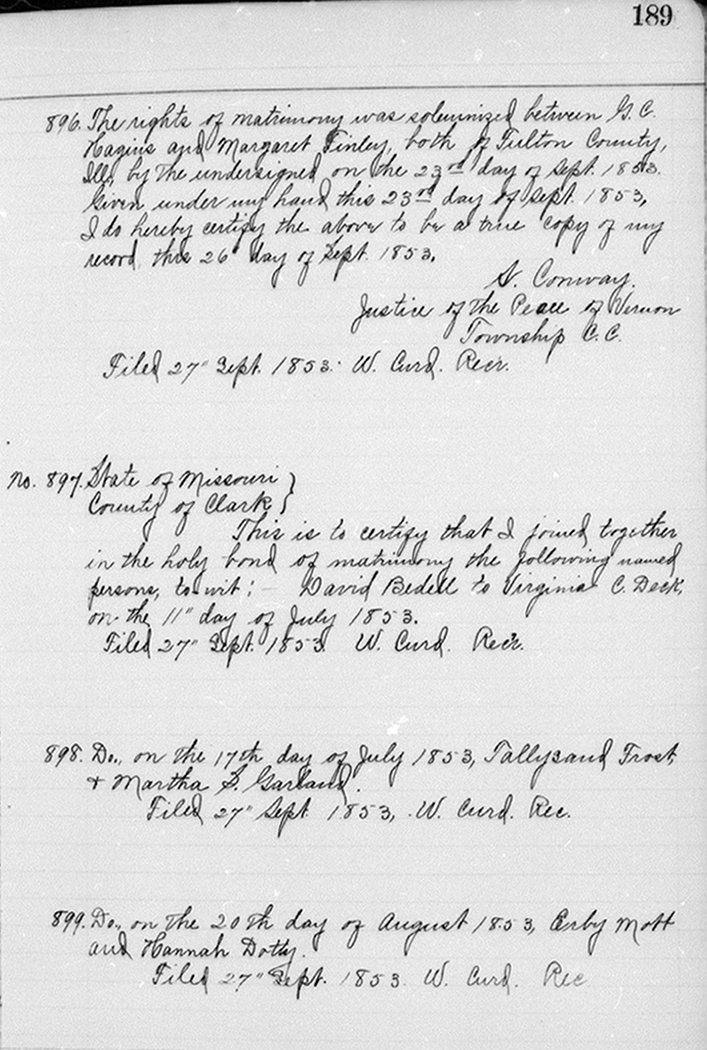 189
896. The rights of matrimony was solemnized between G. C.
Hagins and Margaret Finley, both of Fulton County,
Ills, by the undersigned on the 23rd day of Sept. 1853.
Given under my hand this 23rd day of Sept. 1853,
I do hereby certify the above to be a true copy of my
record, this 26" day of Sept. 1853.
Conway.
Justice of the Peace of Vernon
Township C. C.
Filed 27" Sept. 1853. W. Curd. Recr.
No. 897. State of Missouri }
County of Clark }
This is to certify that I joined together
in the holy bond of matrimony the following named
persons, to wit; — David Bedell to Virginia C. Deck,
on the 11" day of July 1853.
Filed 27" Sept. 1853. W. Curd. Recr.
898. Do., on the 17th day of July 1853, Tallysand Frost
+ Martha S. Garland.
Filed 27" Sept 1853, W. Curd. Rec.
899. Do., on the 20th day of August 1853, Erby Mott
and Hannah Dotty.
Filed 27" Sept. 1853. W. Curd. Rec